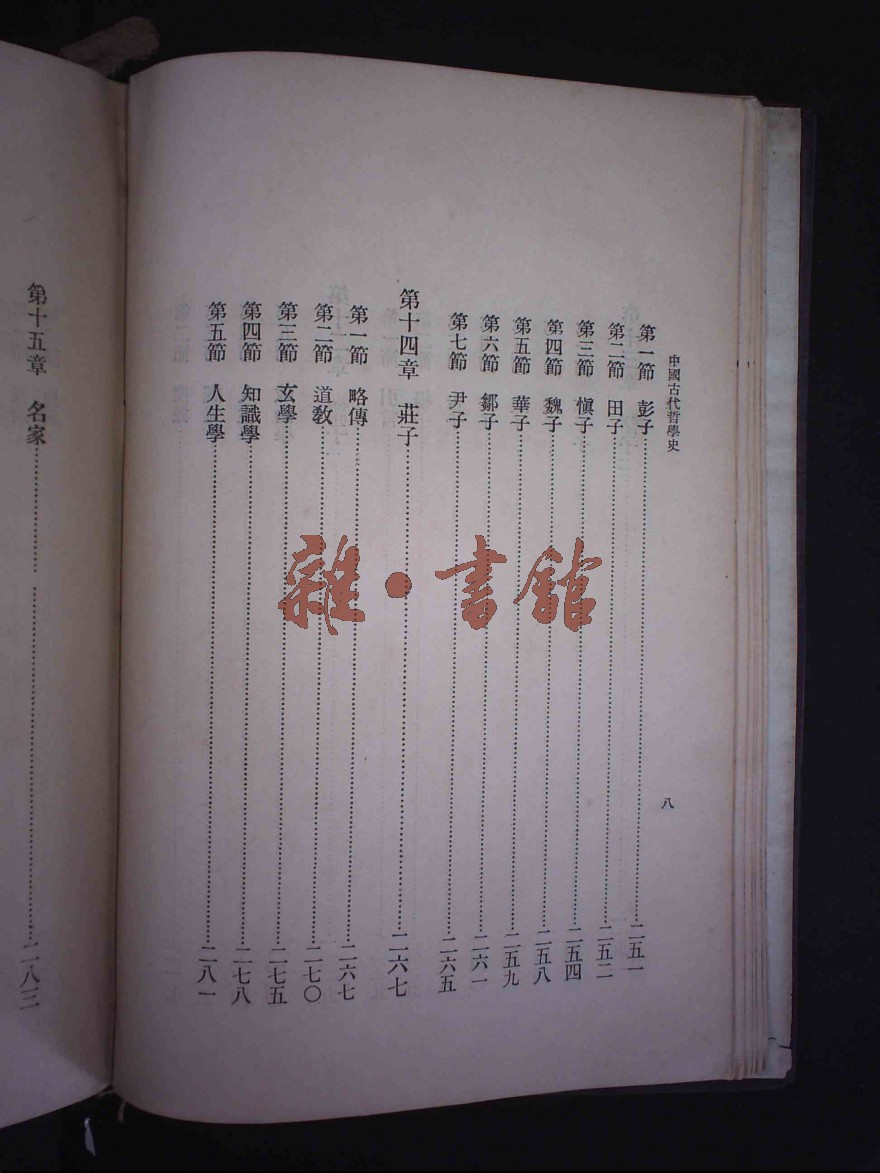 中國古代哲學史
八
第一節 彭子 二五一
第二節 田子 二五二
第三節 愼子 二五四
第四節 魏子 二五八
第五節 華子 二五九
第六節 鄒子 二六一
第七節 尹子 二六五
第十四章 莊子 二六七
第一節 略傳 二六七
第二節 道敎 二七〇
第三節 玄學 二七五
第四節 知識學 二七八
第五節 人生學 二八一
第十五章 名家 二八三
雜·書館